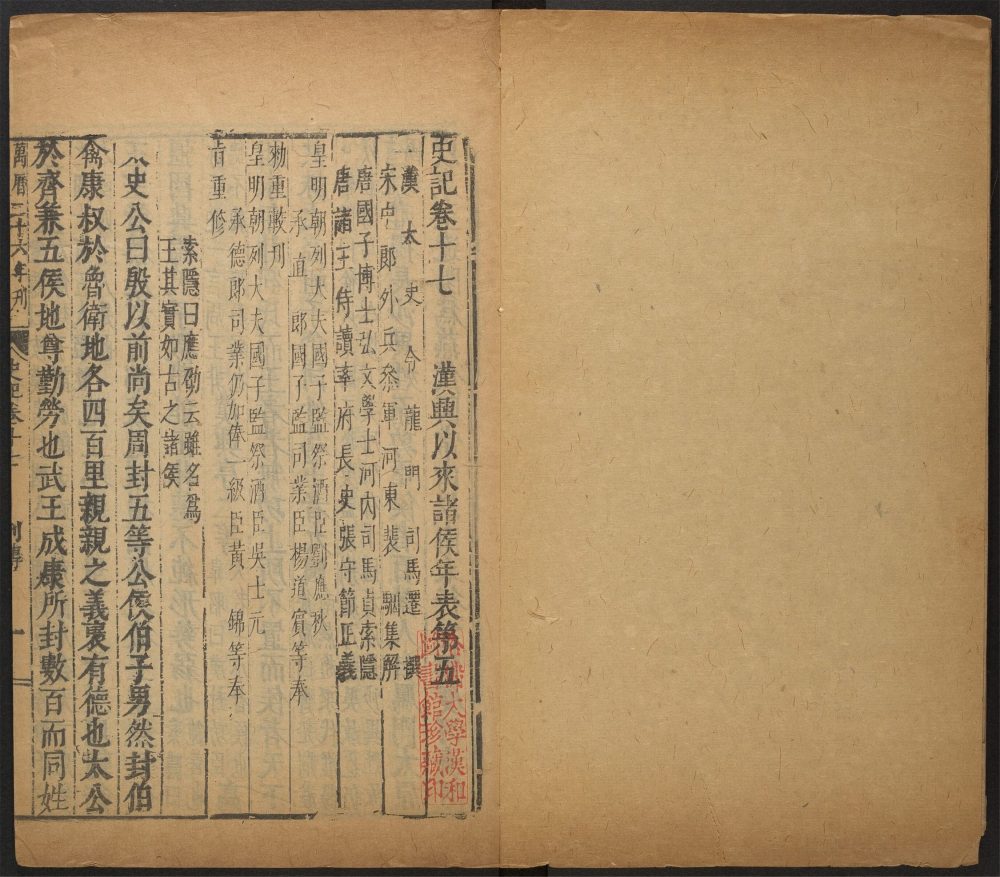 史記卷十七　漢興以來諸侯年表第五
漢太史令龍門司馬遷撰
宋中郎外兵叅軍河東裴駰集解
唐國子博士弘文學士河內司馬貞索隱
唐諸王侍讀率府長史張守節正義
皇明朝列大夫國子監祭酒臣劉應秋
承直郎國子監司業臣楊道賓等奉
勑重較刊
皇明朝列大夫國子監祭酒臣吳士元
承德郎司業仍加俸一級臣黃錦等奉
旨重修
索隱曰應劭云雖名爲
王其實如古之諸侯
太史公曰殷以前尚矣周封五等公侯伯子男然封伯
禽康叔於魯衛地各四百里親親之義褒有德也太公
於齊兼五侯地尊勤勞也武王成康所封數百而同姓
萬曆二十六年刊
史記卷十七
一
哈佛大學漢和
圖書館珍藏印